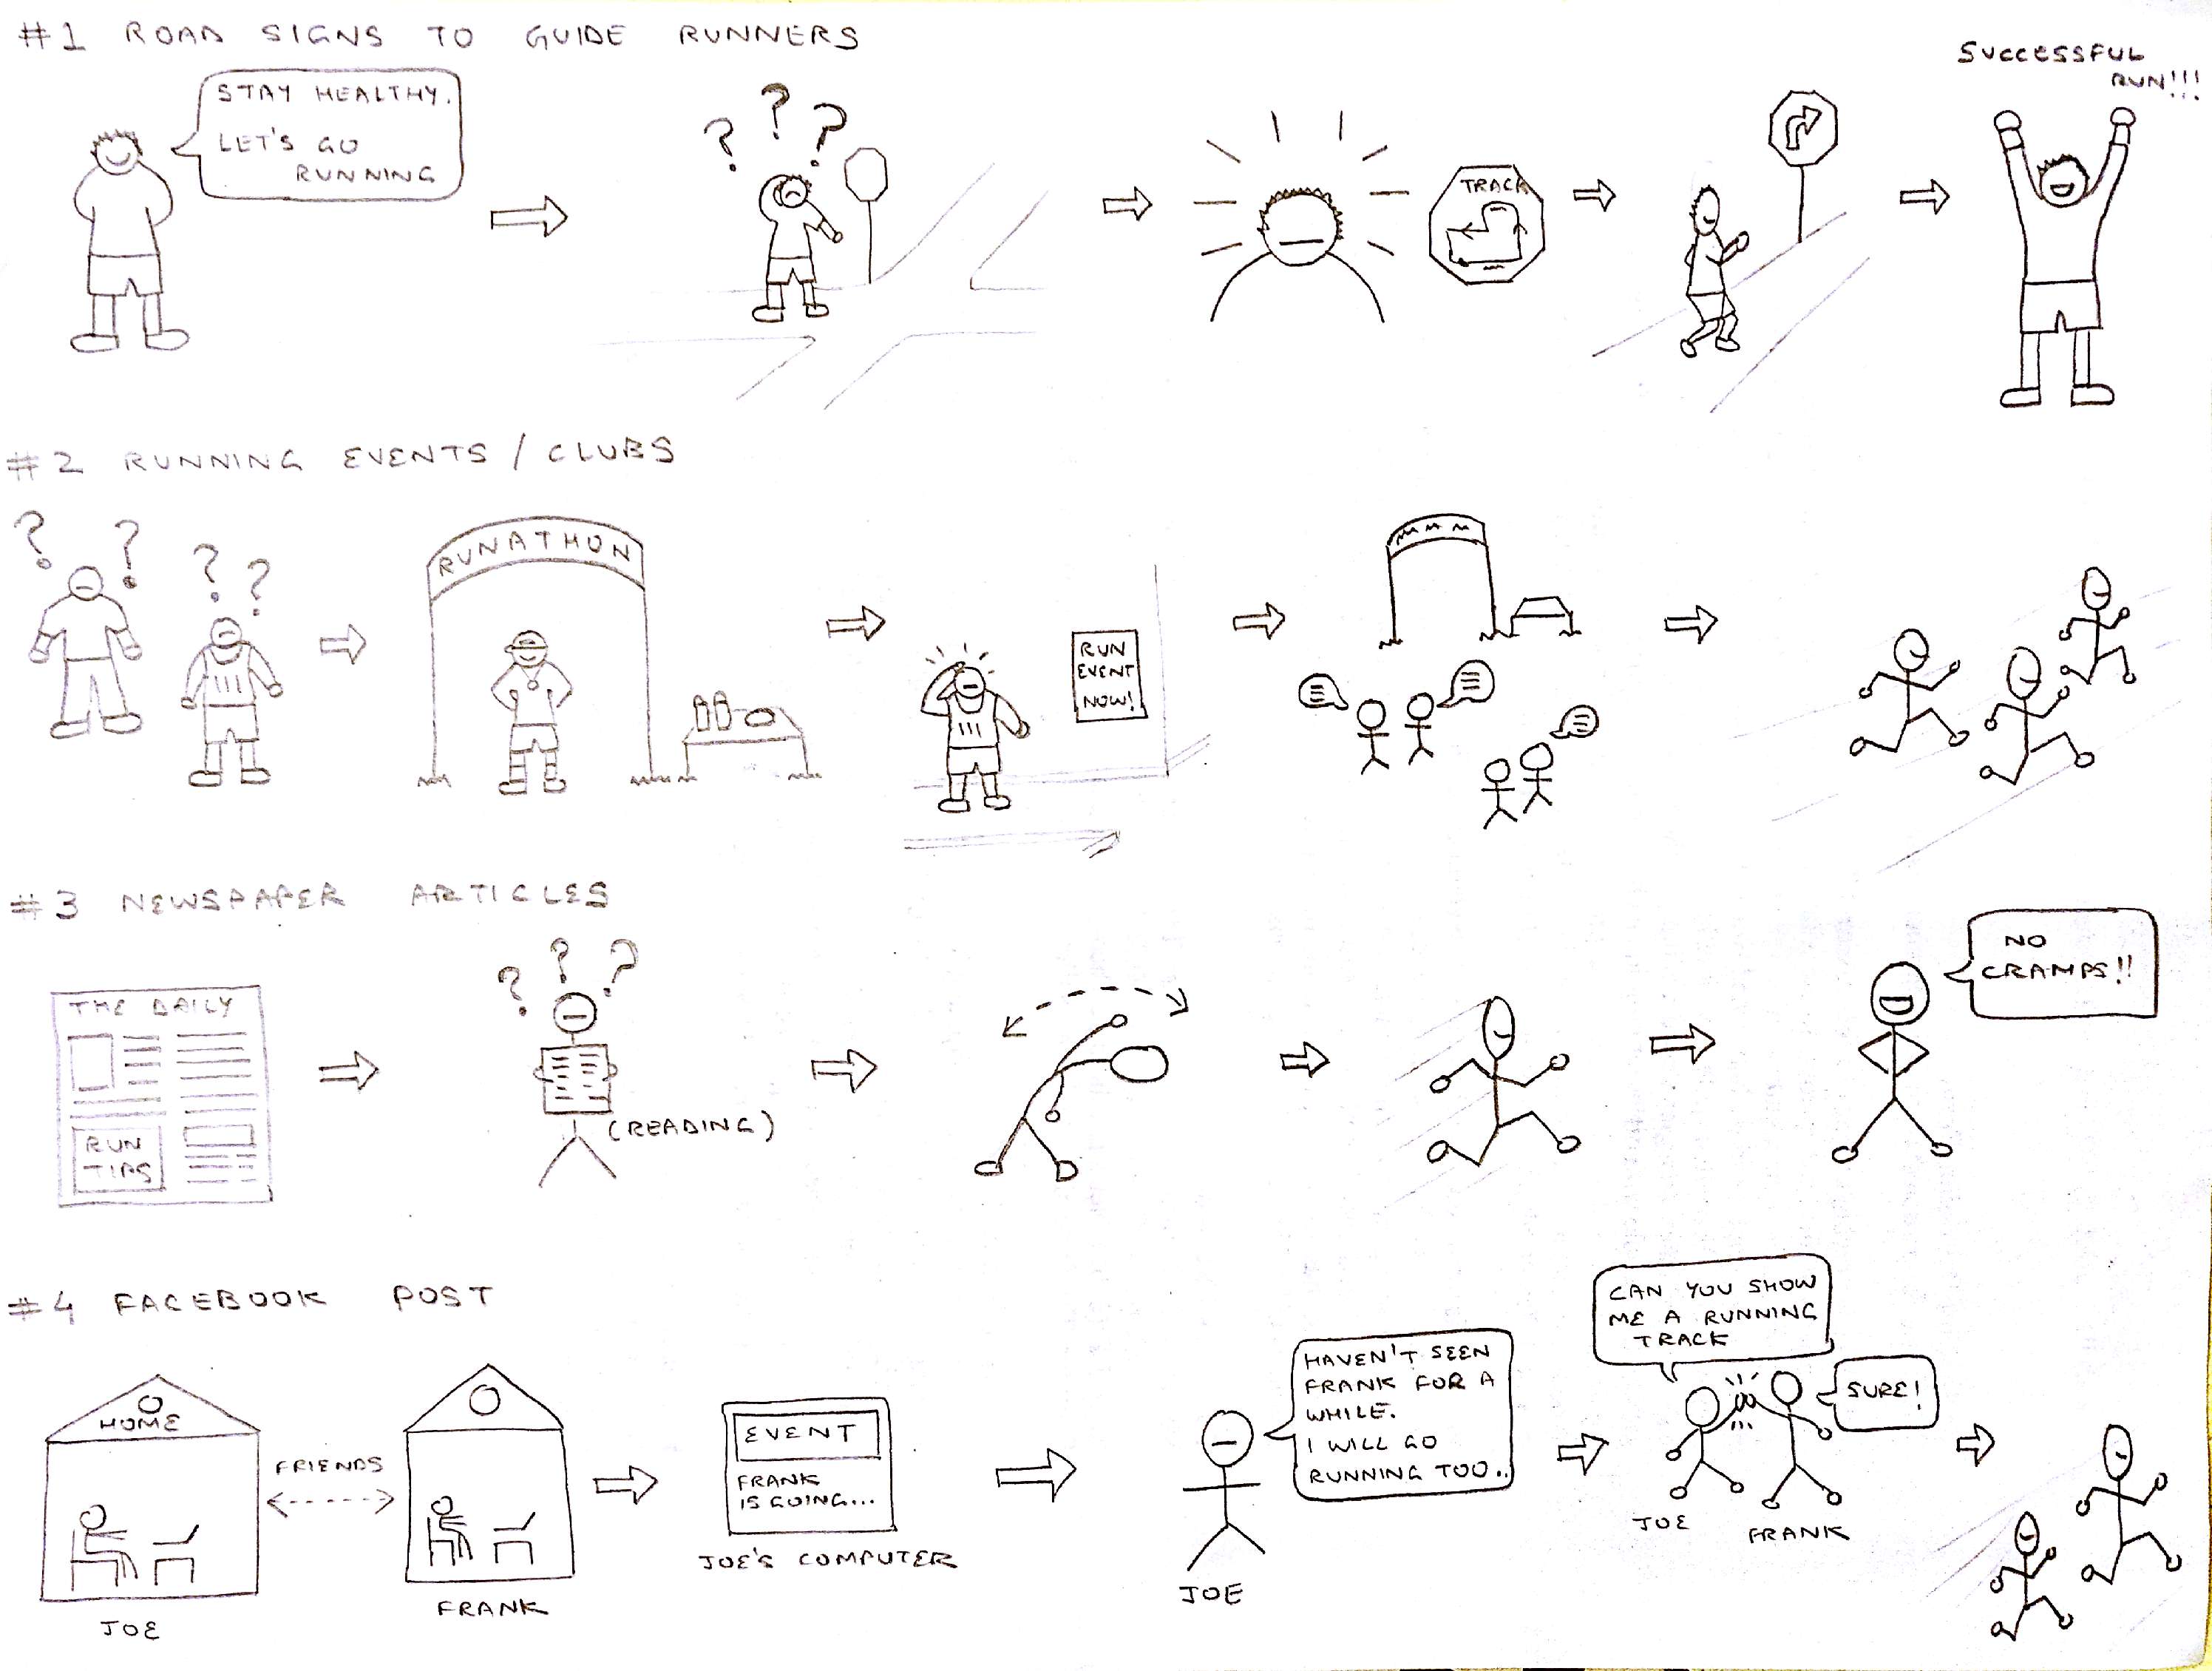 #1 ROAD SIGNS TO GUIDE RUNNERS
STAY HEALTHY.
LET'S GO
RUNNING
? ? ?
TRACK
SUCCESSFUL
RUN!!!
#2 RUNNING EVENTS / CLUBS
? ?
? ?
RUNATHON
RUN
EVENT
NOW!
#3 NEWSPAPER ARTICLES
THE DAILY
RUN
TIPS
? ? ?
(READING)
NO
CRAMPS!!
#4 FACEBOOK POST
HOME
JOE
FRIENDS
FRANK
EVENT
FRANK
IS GOING...
JOE'S COMPUTER
HAVEN'T SEEN
FRANK FOR A
WHILE.
I WILL GO
RUNNING TOO..
JOE
CAN YOU SHOW
ME A RUNNING
TRACK
SURE!
JOE
FRANK